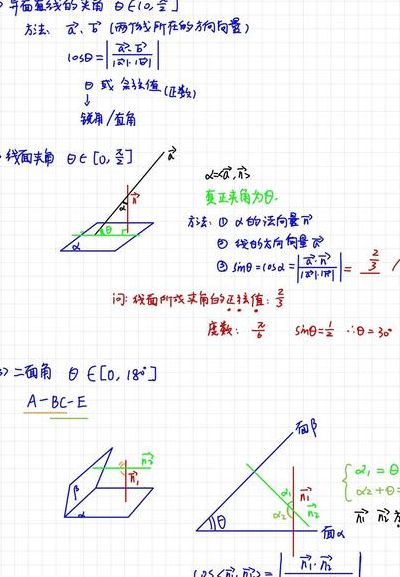 异面直线的夹角 θ∈(0, π/2]
方法: a⃗、b⃗ (两个线所在的方向向量)
cosθ=|a⃗·b⃗/|a⃗|·|b⃗||
θ 或 余弦值(正数)
↓
锐角/直角
线面夹角 θ∈[0, π/2]
a⃗
α=<a⃗, n⃗>
n⃗
α
真正夹角为θ.
θ
α
方法: ① α的法向量n⃗
② 线的方向向量a⃗
③ sinθ=|cosα|=|a⃗·n⃗/|a⃗|·|n⃗||=2/3
问: 线面所成夹角的正弦值: 2/3
度数: π/6 sinθ=1/2 ∴θ=30°
二面角 θ∈[0, 180°]
A-BC-E
面β
n₂⃗
n₁⃗
β
α
α₁
n₁⃗
α₂
n₂⃗
θ
面α
α₁=θ
α₂+θ=
n₁⃗ n₂⃗
cos<n₁⃗, n₂⃗>=|n₁⃗·n₂⃗